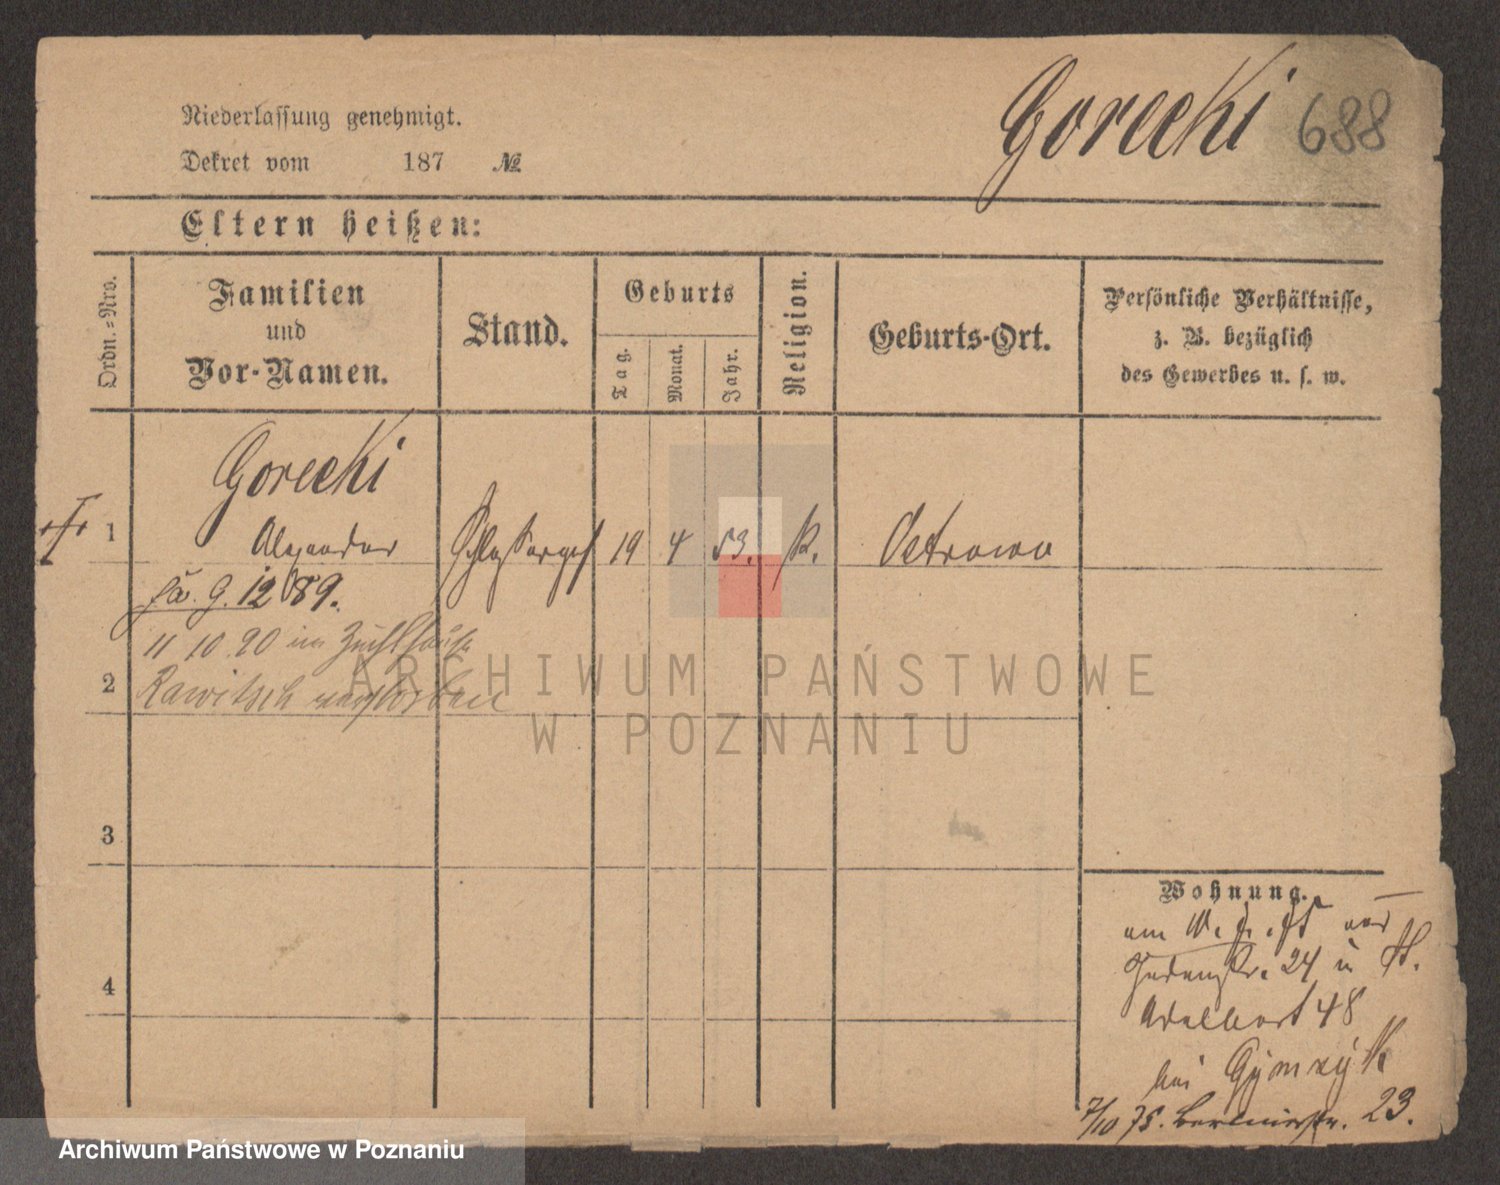 Gorecki 688
Niederlassung genehmigt.
Dekret vom 187 №
Eltern heißen:
Ordn.=Nro.
Familien
und
Vor-Namen.
Stand.
Geburts
Tag.
Monat.
Jahr.
Religion.
Geburts-Ort.
Persönliche Verhältnisse,
z. B. bezüglich
des Gewerbes u. s. w.
Gorecki
1 Alexander Schlosserges 19 4 53. K. Ostrowo
9. 12 89.
11 10. 90 im Zuchthause
2 Rawitsch verstorben
3
4
Wohnung.
Judenstr. 24 in St.
Adalbert 48
bei Gymzyk
7/10 75. 23.
ARCHIWUM PAŃSTWOWE
W POZNANIU
Archiwum Państwowe w Poznaniu